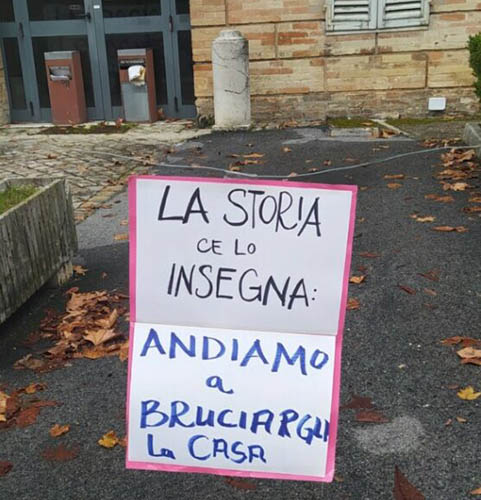 LA STORIA
CE LO
INSEGNA:
ANDIAMO
a
BRUCIARGLI
La CASA